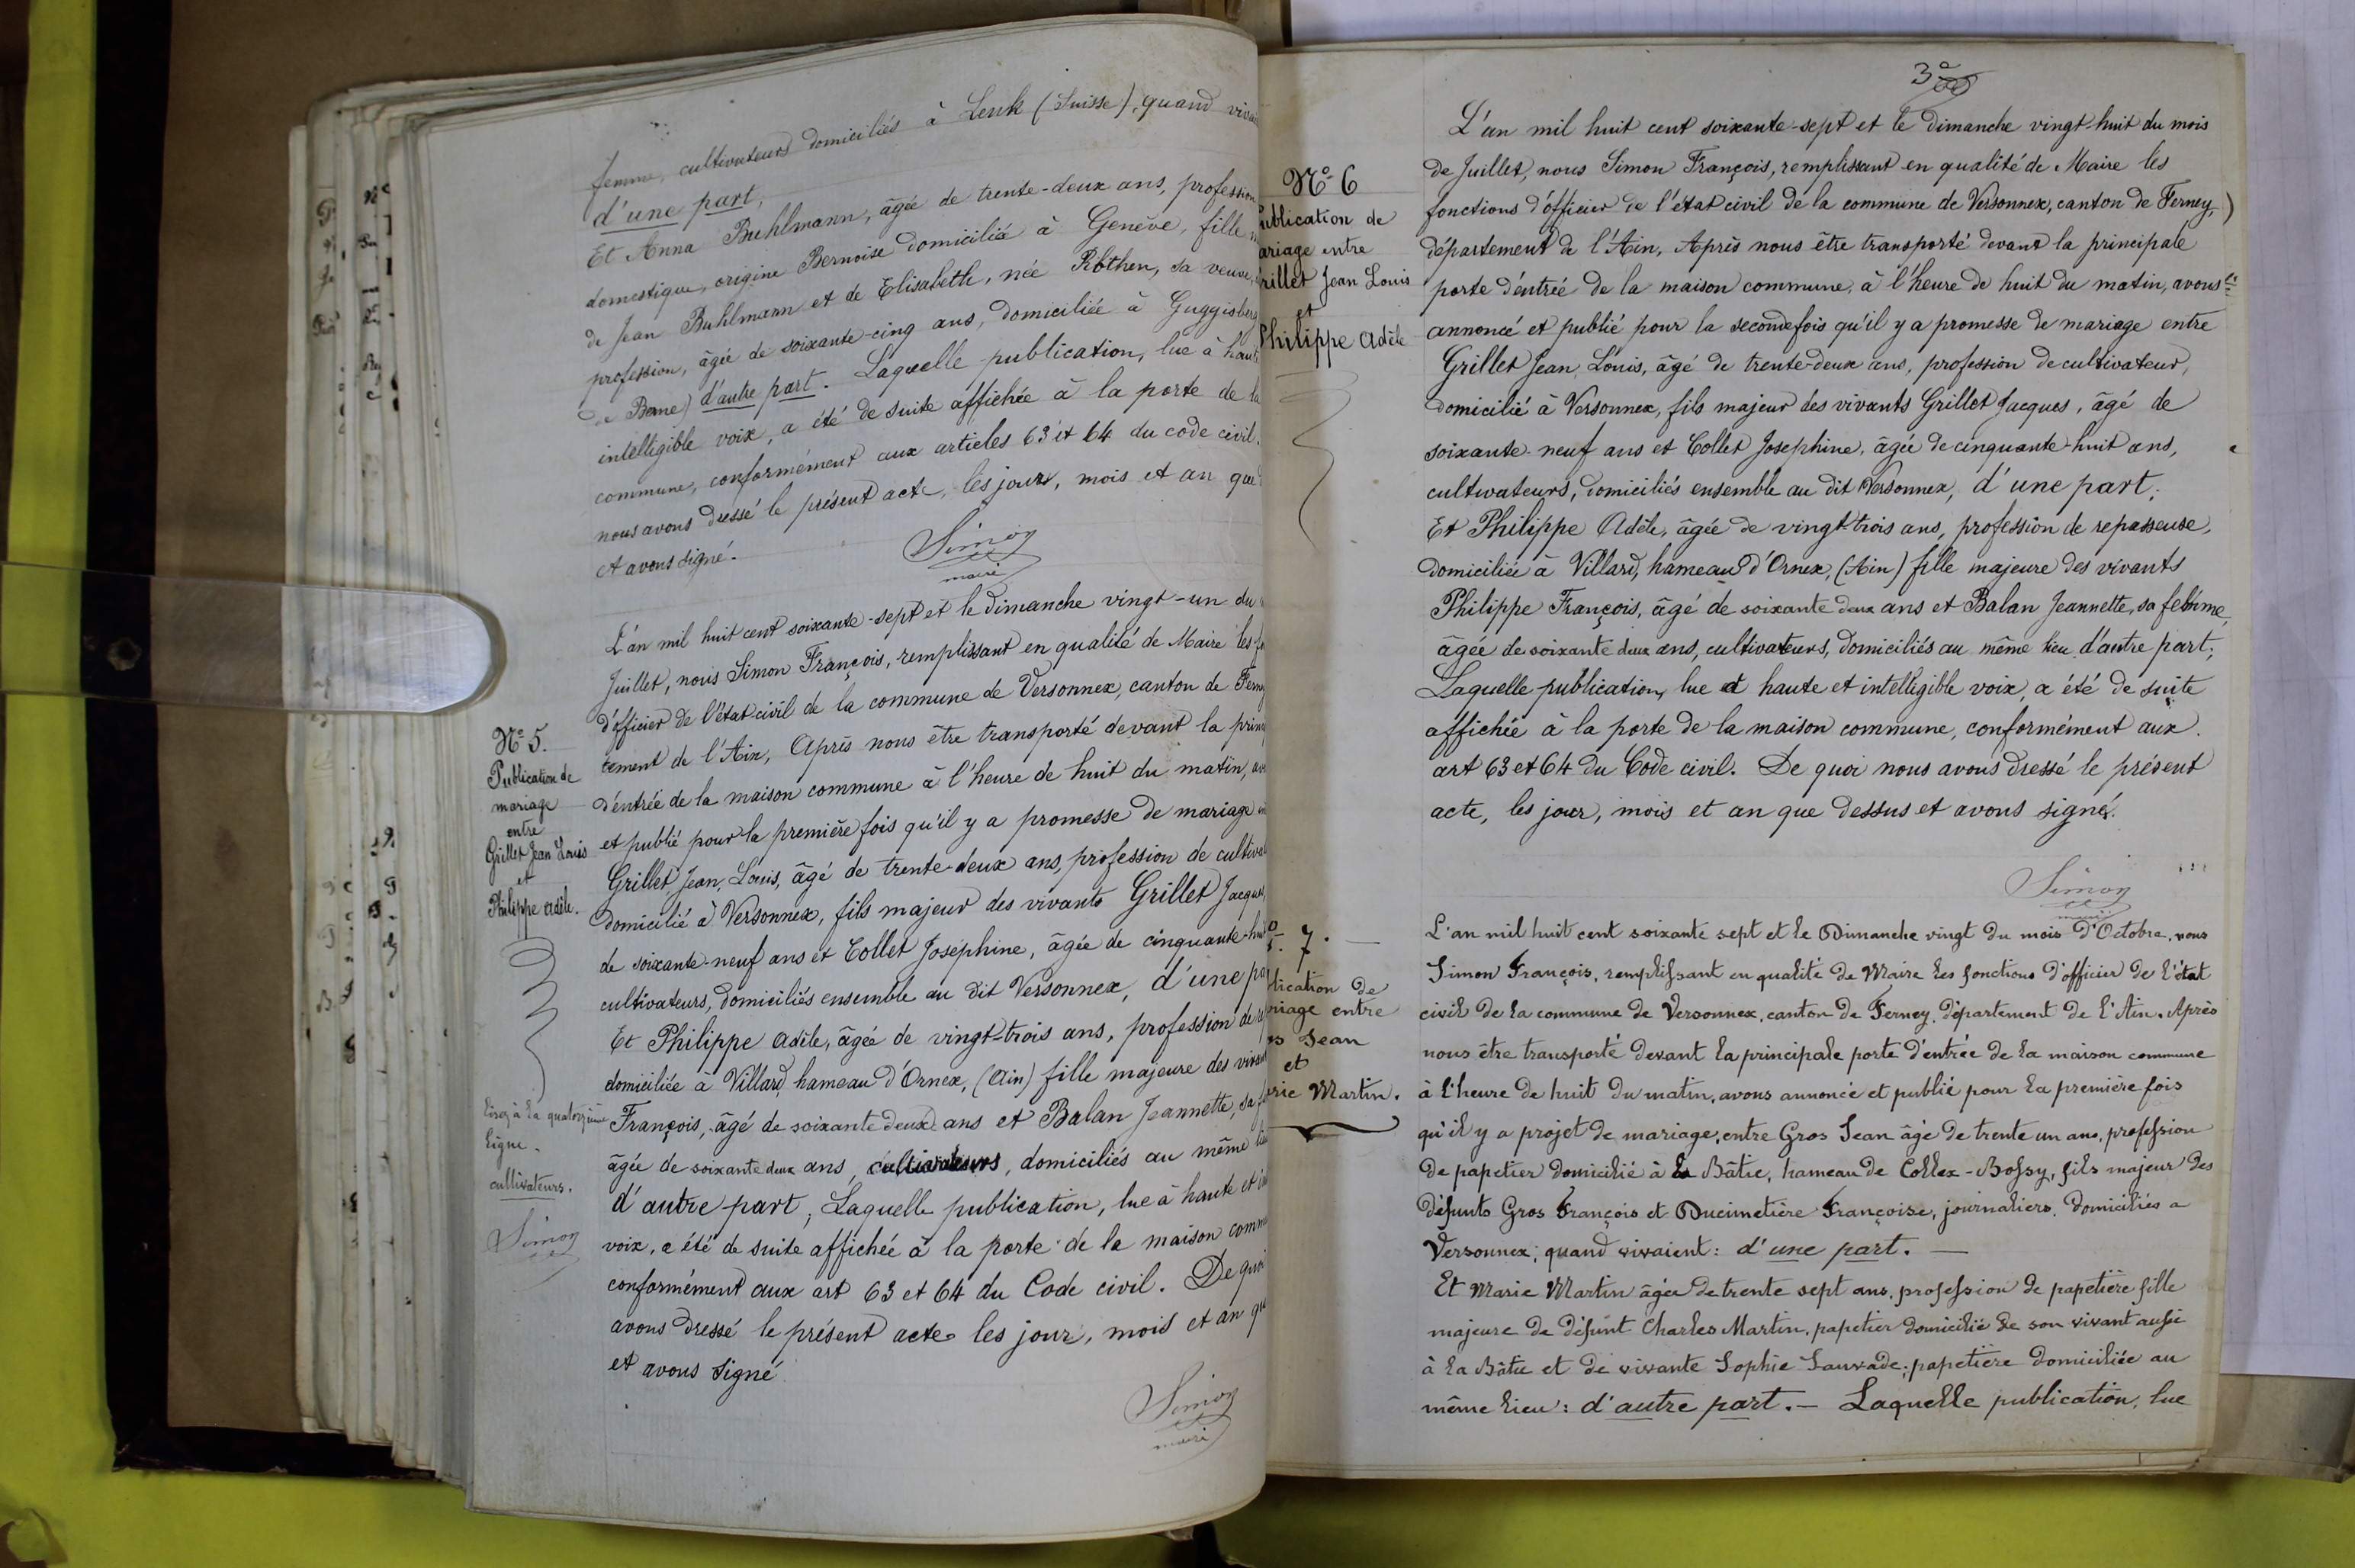 femme, cultivateurs domiciliés à Lenk (Suisse), quand
d'une part,
Et Anna Buhlmann, âgée de trente-deux ans, profession
domestique, origine Bernoise domiciliée à Genève, fille
de Jean Buhlmann et de Elisabeth, née Rothen, sa veuve,
profession, âgée de soixante-cinq ans, domiciliée à Guggisberg
de Berne) d'autre part. Laquelle publication, lue à haute
intelligible voix, a été de suite affichée à la porte de la
commune, conformément aux articles 63 et 64 du code civil.
nous avons dressé le présent acte, les jours, mois et an que
et avons signé.
Simon
maire
N° 5.
Publication de
mariage
entre
Grillet Jean Louis
et
Philippe Adèle.
L'an mil huit cent soixante-sept et le dimanche vingt-un du
Juillet, nous Simon François, remplissant en qualité de Maire les
d'officier de l'état civil de la commune de Versonnex, canton de
tement de l'Ain, Après nous être transporté devant la
d'entrée de la maison commune à l'heure de huit du matin,
et publié pour la première fois qu'il y a promesse de mariage
Grillet Jean, Louis, âgé de trente-deux ans, profession de
domicilié à Versonnex, fils majeur des vivants Grillet Jacques,
de soixante-neuf ans et Collet Josephine, âgée de cinquante-
cultivateurs, domiciliés ensemble au dit Versonnex, d'une
Et Philippe Adèle, âgée de vingt-trois ans, profession de
domiciliée à Villard, hameau d'Ornex, (Ain) fille majeure des
François, âgé de soixante deux ans et Balan Jeannette, sa
âgée de soixante deux ans, cultivateurs, domiciliés au même
d'autre part, Laquelle publication, lue à haute et
voix, a été de suite affichée à la porte de la maison
conformément aux art 63 et 64 du Code civil. De quoi
avons dressé le présent acte les jour, mois et an
et avons signé
lisez à la quatorzième
ligne.
cultivateurs.
Simon
Simon
maire
3
N° 6
ublication de
ariage entre
rillet Jean Louis
et
Philippe Adèle
L'an mil huit cent soixante-sept et le dimanche vingt-huit du mois
de Juillet, nous Simon François, remplissant en qualité de Maire les
fonctions d'officier de l'état civil de la commune de Versonnex, canton de Ferney,
département de l'Ain, Après nous être transporté devant la principale
porte d'entrée de la maison commune, à l'heure de huit du matin, avons
annoncé et publié pour la seconde fois qu'il y a promesse de mariage entre
Grillet Jean, Louis, âgé de trente-deux ans, profession de cultivateur,
domicilié à Versonnex, fils majeur des vivants Grillet Jacques, âgé de
soixante-neuf ans et Collet Josephine, âgée de cinquante-huit ans,
cultivateurs, domiciliés ensemble au dit Versonnex, d'une part;
Et Philippe Adèle, âgée de vingt-trois ans, profession de repasseuse,
domiciliée à Villard, hameau d'Ornex, (Ain) fille majeure des vivants
Philippe François, âgé de soixante deux ans et Balan Jeannette, sa femme,
âgée de soixante deux ans, cultivateurs, domiciliés au même lieu d'autre part;
Laquelle publication, lue à haute et intelligible voix, a été de suite
affichée à la porte de la maison commune, conformément aux
art 63 et 64 du Code civil. De quoi nous avons dressé le présent
acte, les jour, mois et an que dessus et avons signé.
Simon
maire
7.
lication de
riage entre
s Jean
et
rie Martin.
L'an mil huit cent soixante sept et le Dimanche vingt du mois d'Octobre, nous
Simon François, remplissant en qualité de Maire les fonctions d'officier de l'état
civil de la commune de Versonnex, canton de Ferney, département de l'Ain. Après
nous être transporté devant la principale porte d'entrée de la maison commune
à l'heure de huit du matin, avons annoncé et publié pour la première fois
qu'il y a projet de mariage, entre Gros Jean âgé de trente un ans, profession
de papetier domicilié à la Bâtie, hameau de Collex-Bossy, fils majeur des
défunts Gros François et Ducimetière Françoise, journaliers, domiciliés a
Versonnex; quand vivaient: d'une part.
Et Marie Martin âgée de trente sept ans, profession de papetière fille
majeure de défunt Charles Martin, papetier domicilié de son vivant aussi
à la Bâtie et de vivante Sophie Sauvade, papetière domiciliée au
même lieu: d'autre part. — Laquelle publication, lue